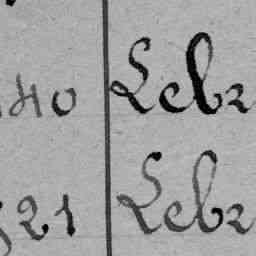 40 Lebr
21 Lebr